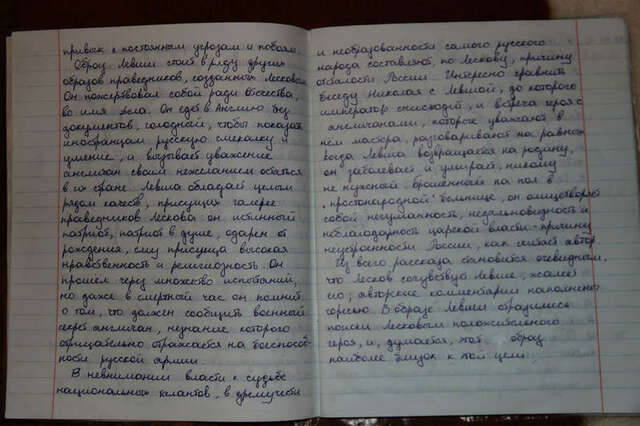 привык к постоянным угрозам и побоям.
Образ Левши стоит в ряду других
образов праведников, созданных Лесковым.
Он пожертвовал собой ради Отечества,
во имя дела. Он едет в Англию без
документов, голодный, чтобы показать
иностранцам русскую смекалку и
умение, и вызывает уважение
англичан своим нежеланием остаться
в их стране. Левша обладает целым
рядом качеств, присущих галерее
праведников Лескова: он истинный
патриот, патриот в душе, одарен от
рождения, ему присуща высокая
нравственность и религиозность. Он
прошёл через множество испытаний,
но даже в смертный час он помнит
о том, что должен сообщить военный
секрет англичан, незнание которого
отрицательно отражается на боеспособ
ности русской армии.
В невнимании власти к судьбе
национальных талантов, в дремучести
и необразованности самого русского
народа составляют, по Лескову, причину
отсталости России. Интересно сравнить
беседу Николая с Левшой, до которого
император снисходит, и встреча героя с
англичанами, которые уважают в
нём мастера, разговаривают на равных.
Когда Левша возвращается на родину,
он заболевает и умирает, никому
не нужный. Брошенный на пол в
"простонародной" больнице, он олицетворяет
собой негуманность, недальновидность и
неблагодарность царской власти - причину
неустроенности России, как считает автор.
Из всего рассказа становится очевидным,
что Лесков сочувствует Левше, жалеет
его; авторские комментарии наполнены
горечью. В образе Левши отразились
поиски Лесковым положительного
героя, и, думается, этот образ
наиболее близок к этой цели